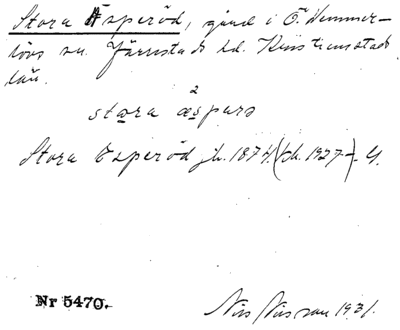 Stora Äsperöd, gård i Ö. Hemmer-
lövs sn. Järrestads hd. Kristianstads
län.
2
stora æspərs
Stora Esperöd jb. 1874. (kk. 1927-). G.
Nr 5470.
Nils Nilsson 1931.